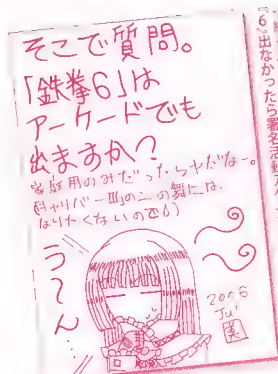 そこで質問。
「鉄拳6」は
アーケードでも
出ますか?
家庭用のみだったらヤだなー。
の二の舞には、
なりたくないので
う〜ん…
2006
Jul
6』出なかったら署名活動